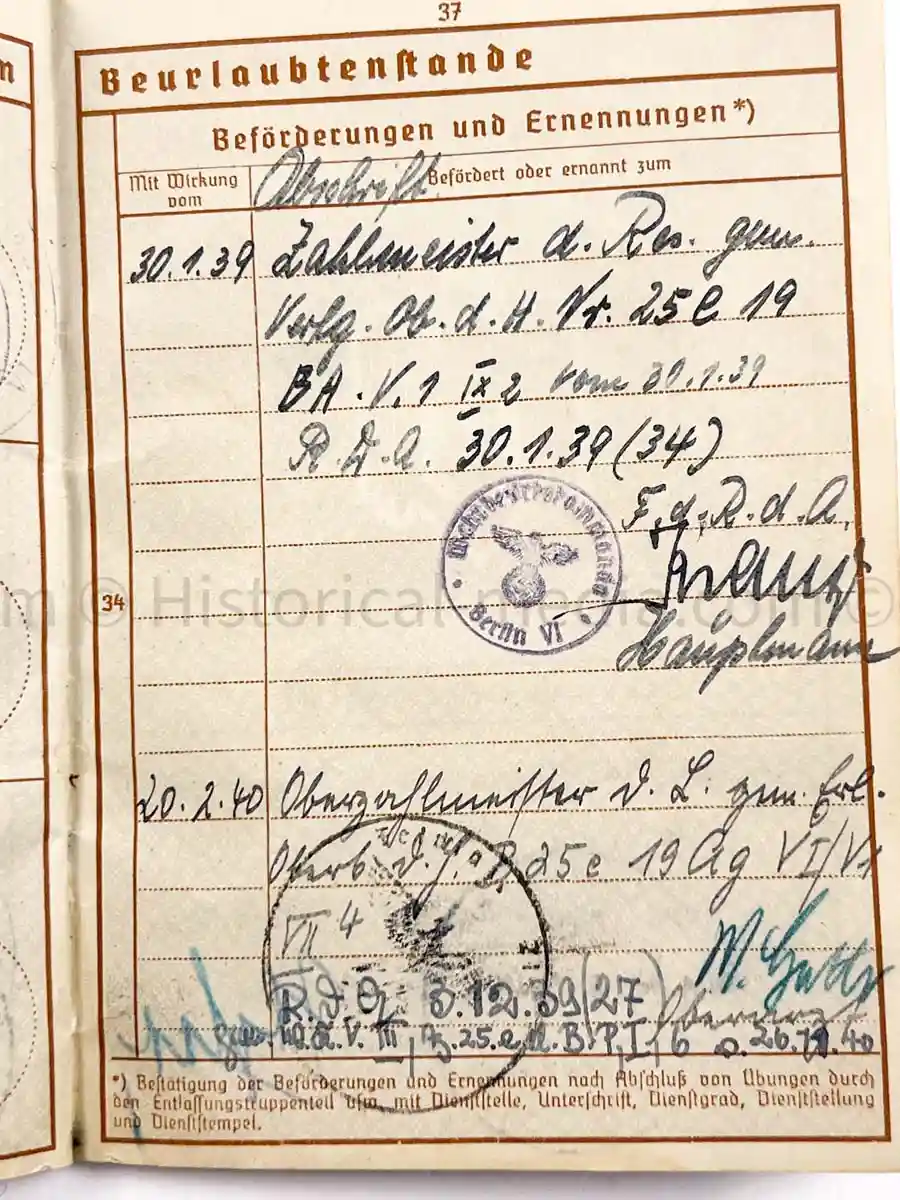 37
Beurlaubtenstande
Beförderungen und Ernennungen*)
Mit Wirkung vom
Befördert oder ernannt zum
Abschrift
30.1.39 Zahlmeister d. Res. gem.
Verfg. Ob. d. H. Nr. 25 e 19
BA. V. 1 IX 2 vom 30.1.39
R. D. A. 30.1.39 (34)
F. d. R. d. A.
Wehrbezirkskommando
Berlin VI
Hauptmann
34
m © Historical-media.com ©
20.2.40 Oberzahlmeister d. L. gem. Erl.
Oberb. d. H. 25 e 19 Ag VI/V1
VII 4
R. D. A. 3.12.39 (27)
W.A.V. III, 25. e. B. P. I, 6 26. 40
*) Bestätigung der Beförderungen und Ernennungen nach Abschluß von Übungen durch
den Entlassungstruppenteil usw. mit Dienststelle, Unterschrift, Dienstgrad, Dienststellung
und Dienststempel.